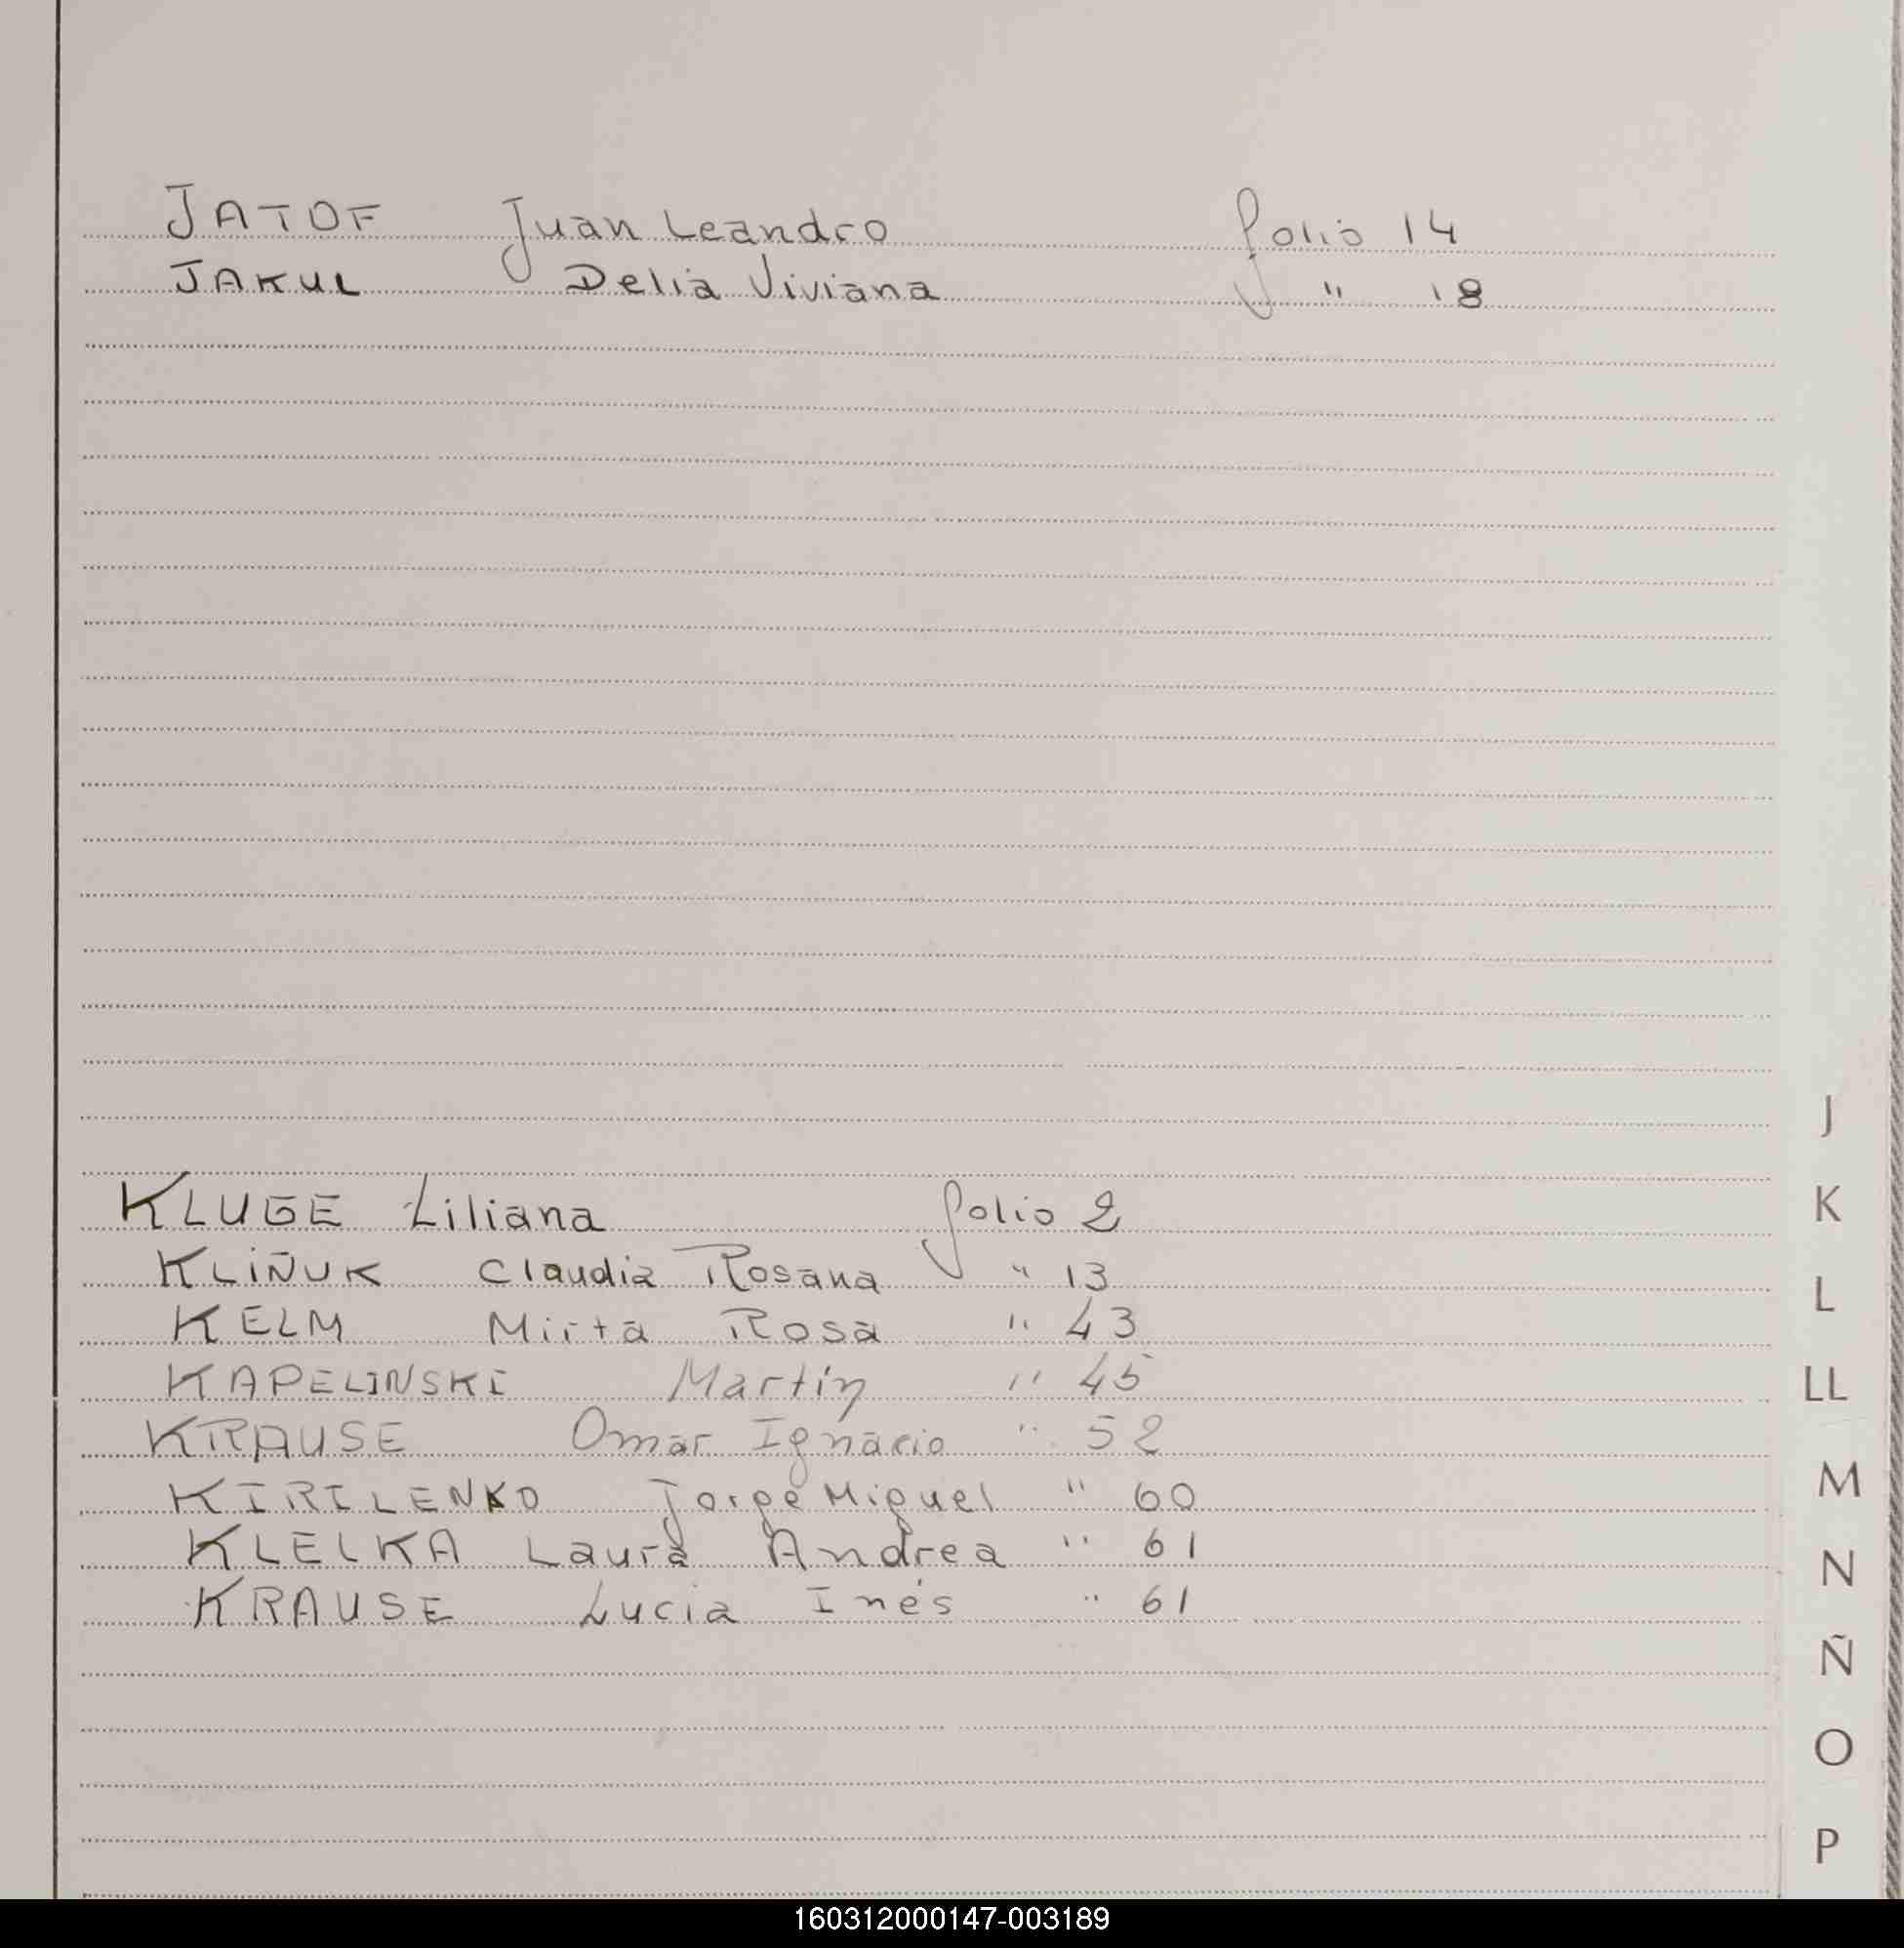 JATOF Juan Leandro folio 14
JAKUL Delia Viviana " 18
J
KLUGE Liliana folio 2
K
KLIÑUK Claudia Rosana " 13
L
KELM Mirta Rosa " 43
KAPELINSKI Martín " 45
LL
KRAUSE Omar Ignacio " 52
M
KIRILENKO Jorge Miguel " 60
KLELKA Laura Andrea " 61
N
KRAUSE Lucia Inés " 61
Ñ
O
P
160312000147-003189